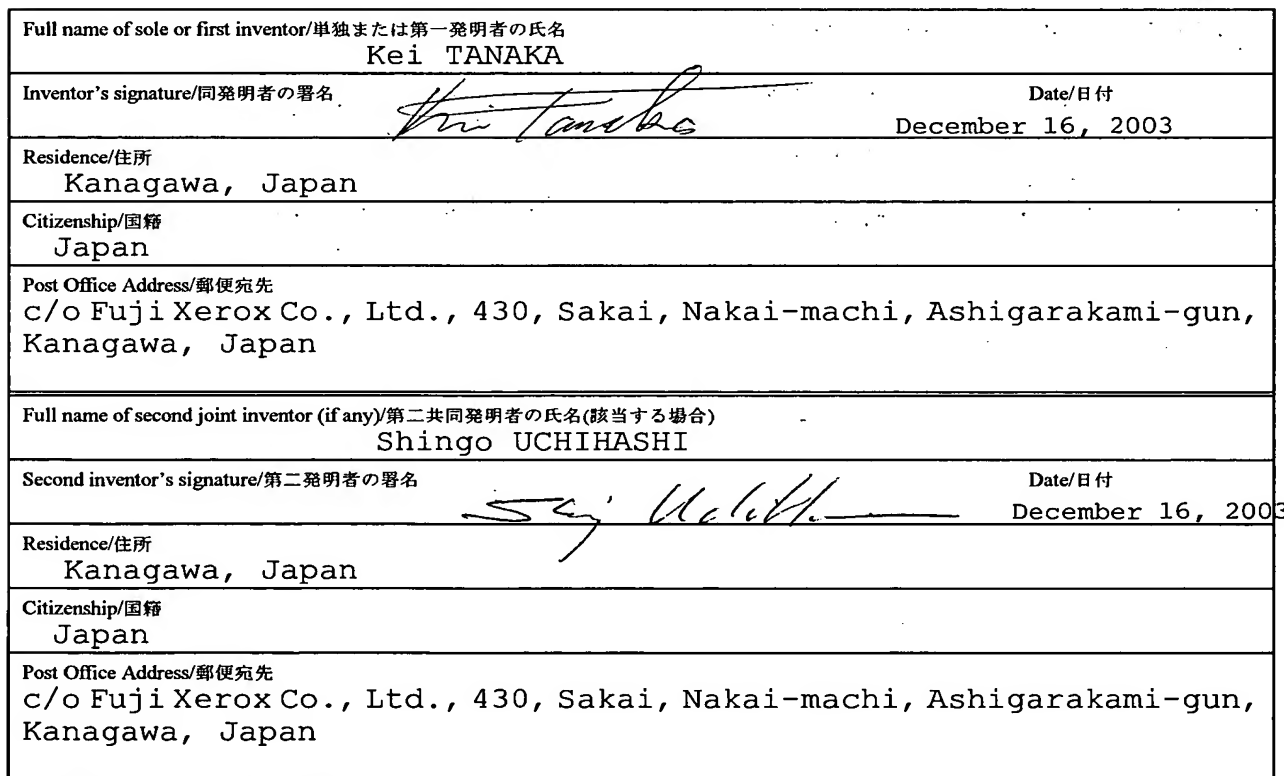 Full name of sole or first inventor/単独または第一発明者の氏名
Kei TANAKA
Inventor's signature/同発明者の署名 Kei Tanaka Date/日付
December 16, 2003
Residence/住所
Kanagawa, Japan
Citizenship/国籍
Japan
Post Office Address/郵便宛先
c/o Fuji Xerox Co., Ltd., 430, Sakai, Nakai-machi, Ashigarakami-gun,
Kanagawa, Japan
Full name of second joint inventor (if any)/第二共同発明者の氏名(該当する場合)
Shingo UCHIHASHI
Second inventor's signature/第二発明者の署名 Date/日付
December 16, 2003
Residence/住所
Kanagawa, Japan
Citizenship/国籍
Japan
Post Office Address/郵便宛先
c/o Fuji Xerox Co., Ltd., 430, Sakai, Nakai-machi, Ashigarakami-gun,
Kanagawa, Japan